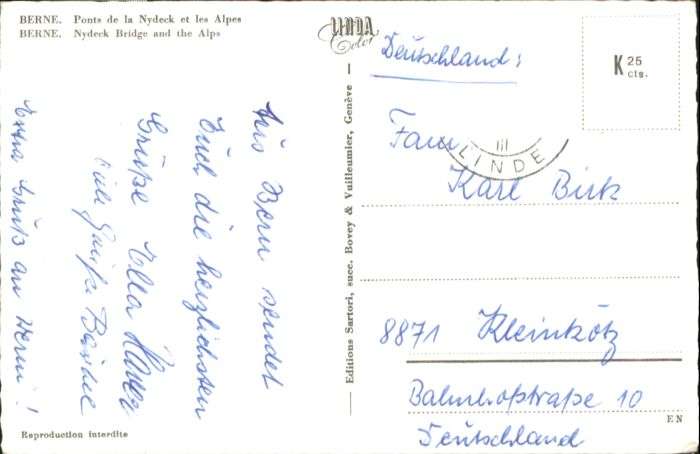 BERNE. Ponts de la Nydeck et les Alpes
BERNE. Nydeck Bridge and the Alps
LINDA
Color
K 25
cts.
Deutschland:
Fam.
Karl Birk
8871 Kleinkötz
Bahnhofstraße 10
Deutschland
III
LINDE
Aus Bern sendet
Euch die herzlichsten
Grüße Ella
Viele Grüße
Extra Gruß an Herm!
— Editions Sartori, succ. Bovey & Vuilleumier, Genève —
Reproduction interdite
EN